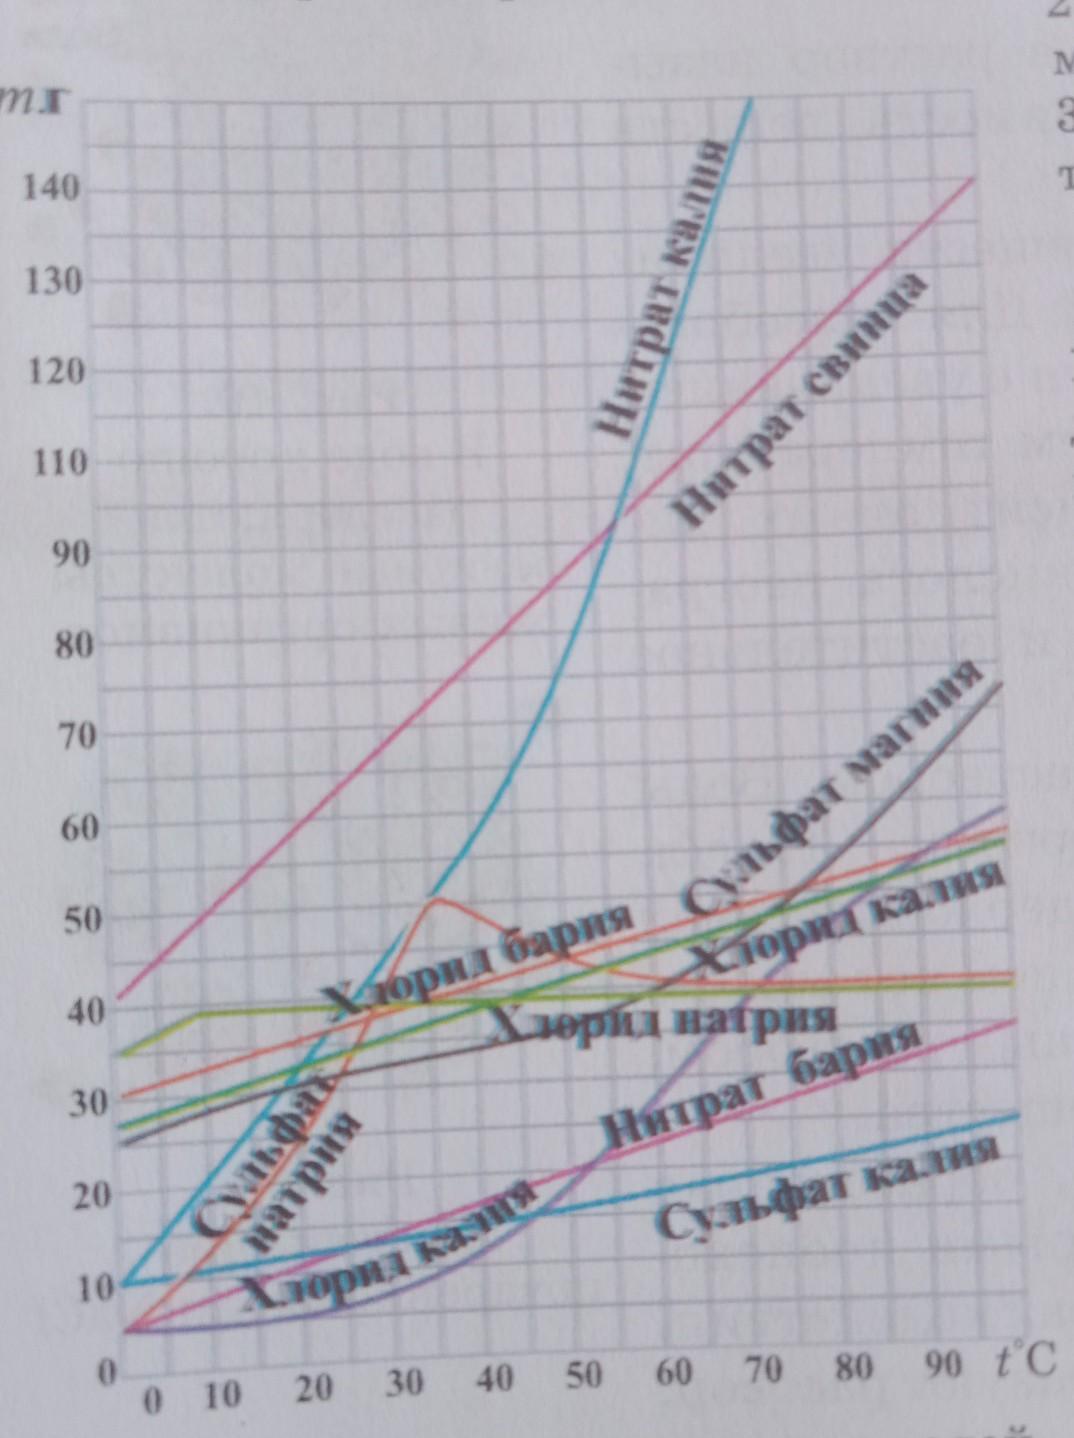 m.г
140
130
120
110
90
80
70
60
50
40
30
20
10
0
Нитрат калия
Нитрат свинца
Сульфат магния
Хлорид бария
Хлорид калия
Хлорид натрия
Сульфат
натрия
Нитрат бария
Хлорид калия
Сульфат калия
0 10 20 30 40 50 60 70 80 90 t°C
2
м
3
т